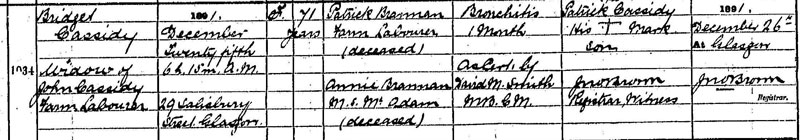 Bridget
Cassidy
1034
Widow of
John Cassidy
Farm Labourer
1891.
December
Twenty fifth
6 h. 15 m. A.M.
29 Salisbury
Street Glasgow.
F.
71
years
Patrick Brannan
Farm Labourer
(deceased)
Annie Brannan
M.S. McAdam
(deceased)
Bronchitis
1 Month
As Cert. by
David M. Smith
M.B. C.M.
Patrick Cassidy
His + Mark
Son
Jno Brown
Registrar, Witness
1891.
December 26th
At Glasgow
Jno Brown
Registrar.